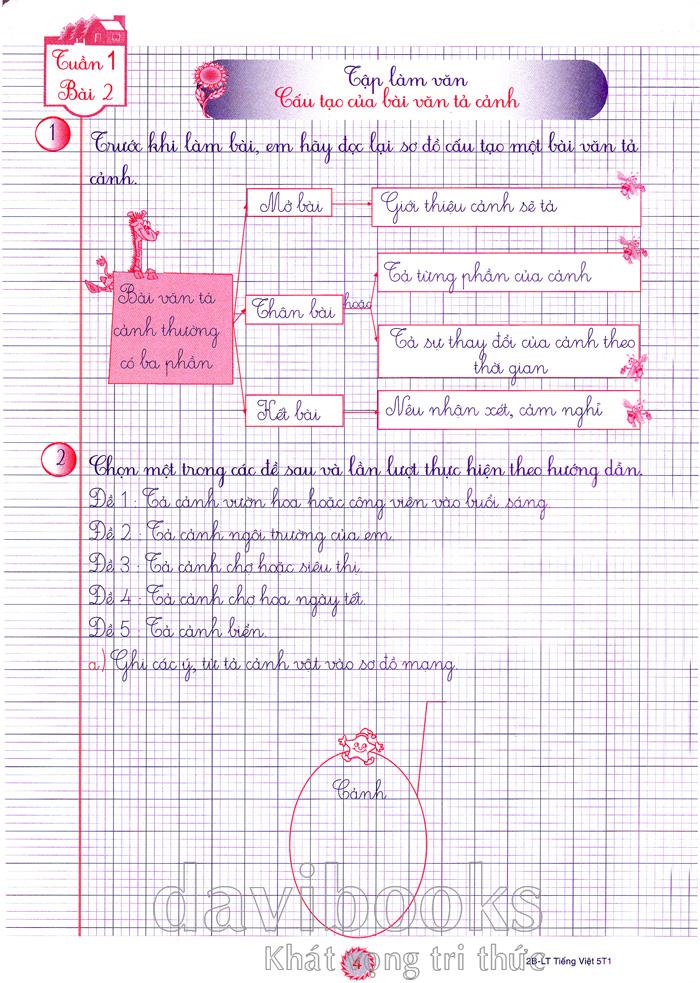 Tuần 1
Bài 2
Tập làm văn
Cấu tạo của bài văn tả cảnh
1
Trước khi làm bài, em hãy đọc lại sơ đồ cấu tạo một bài văn tả
cảnh.
Bài văn tả
cảnh thường
có ba phần
Mở bài
Giới thiệu cảnh sẽ tả
Thân bài
hoặc
Tả từng phần của cảnh
Tả sự thay đổi của cảnh theo
thời gian
Kết bài
Nêu nhận xét, cảm nghĩ
2
Chọn một trong các đề sau và lần lượt thực hiện theo hướng dẫn.
Đề 1 : Tả cảnh vườn hoa hoặc công viên vào buổi sáng.
Đề 2 : Tả cảnh ngôi trường của em.
Đề 3 : Tả cảnh chợ hoặc siêu thị.
Đề 4 : Tả cảnh chợ hoa ngày tết.
Đề 5 : Tả cảnh biển.
a) Ghi các ý, từ tả cảnh vật vào sơ đồ mạng.
Cảnh
davibooks
Khát vọng tri thức
4
2B-LT Tiếng Việt 5T1